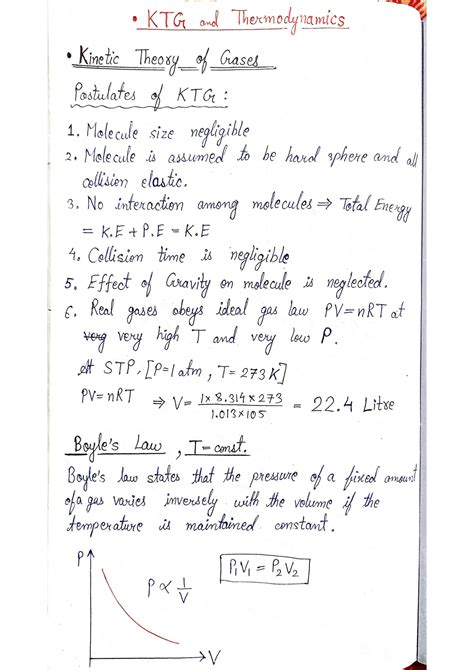 • KTG and Thermodynamics
• Kinetic Theory of Gases
Postulates of KTG :
1. Molecule size negligible
2. Molecule is assumed to be hard sphere and all
collision elastic.
3. No interaction among molecules ⇒ Total Energy
= K.E + P.E = K.E
4. Collision time is negligible
5. Effect of Gravity on molecule is neglected.
6. Real gases obeys ideal gas law PV=nRT at
very very high T and very low P.
At STP, [P=1 atm, T= 273K]
PV= nRT ⇒ V= 1×8.314×273 / 1.013×105 = 22.4 Litre
Boyle's Law , T=const.
Boyle's law states that the pressure of a fixed amount
of a gas varies inversely with the volume if the
temperature is maintained constant.
P
P ∝ 1/V
P₁V₁ = P₂V₂
V